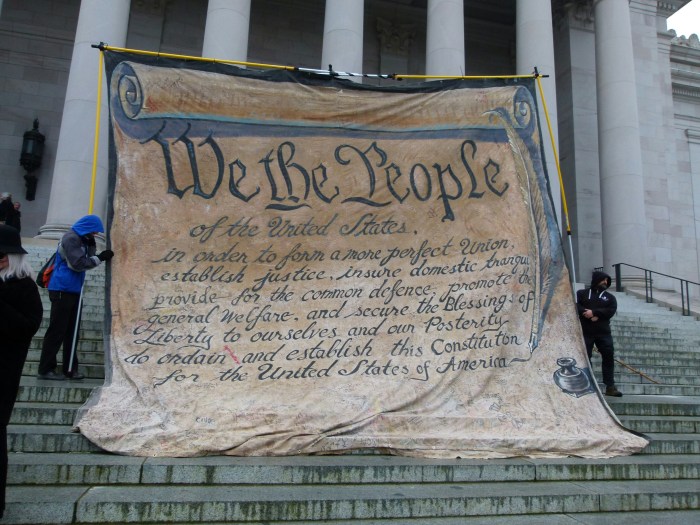 We the People
of the United States,
in order to form a more perfect Union,
establish justice, insure domestic tranqui
provide for the common defence, promote the
general welfare, and secure the Blessings of
Liberty to ourselves and our Posterity
do ordain and establish this Constitution
for the United States of America